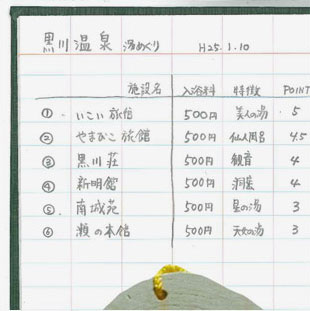 黒川温泉 湯めぐり H25.1.10
施設名 入浴料 特徴 POINT
① いこい旅館 500円 美人の湯 5
② やまびこ旅館 500円 仙人風呂 4.5
③ 黒川荘 500円 観音 4
④ 新明館 500円 洞窟 4
⑤ 南城苑 500円 星の湯 3
⑥ 瀬の本館 500円 天女の湯 3